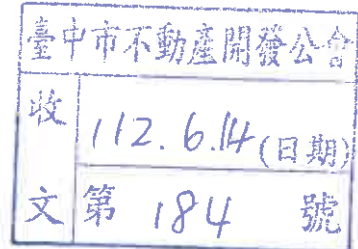 臺中市不動產開發公會
收文
112.6.14(日期)
第 184 號